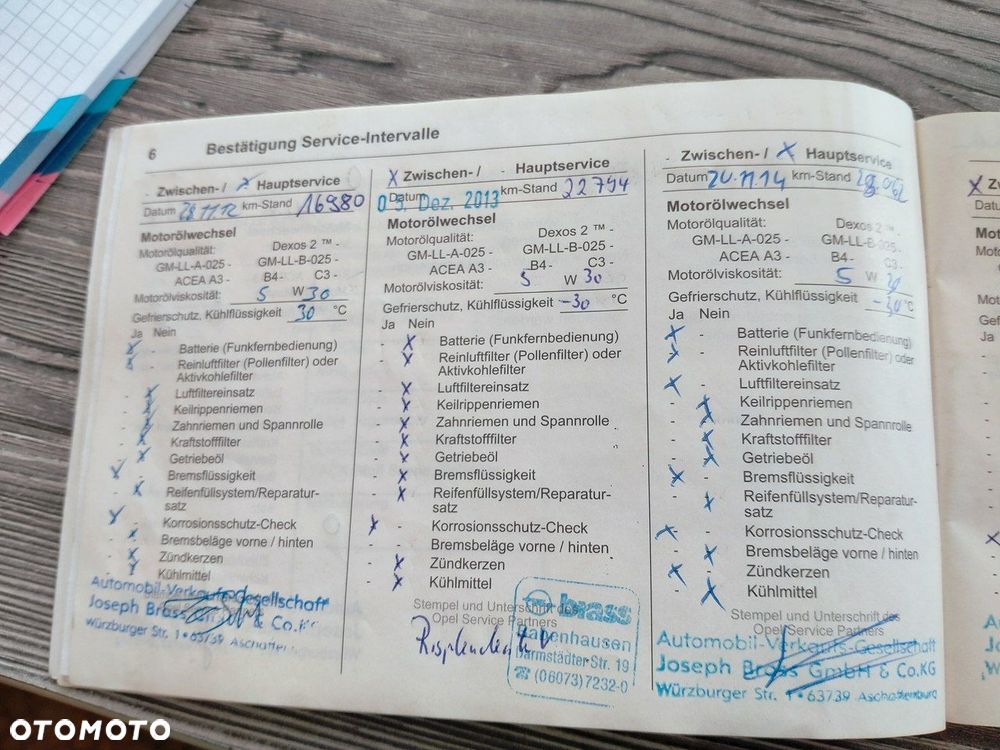 6 Bestätigung Service-Intervalle
- Zwischen- / x Hauptservice
Datum 28.11.12 km-Stand 16980
Motorölwechsel
Motorölqualität: Dexos 2 ™ -
GM-LL-A-025 - GM-LL-B-025 -
ACEA A3 - B4 - C3 -
Motorölviskosität: 5 W 30
Gefrierschutz, Kühlflüssigkeit 30 °C
Ja Nein
x - Batterie (Funkfernbedienung)
x - Reinluftfilter (Pollenfilter) oder
Aktivkohlefilter
- x Luftfiltereinsatz
- x Keilrippenriemen
- x Zahnriemen und Spannrolle
- x Kraftstofffilter
- x Getriebeöl
x - Bremsflüssigkeit
- x Reifenfüllsystem/Reparatur-
satz
x - Korrosionsschutz-Check
- x Bremsbeläge vorne / hinten
- x Zündkerzen
- x Kühlmittel
Automobil-Verkaufs-Gesellschaft
Joseph Brass GmbH & Co.KG
Würzburger Str. 1 • 63739 Aschaffenburg
x Zwischen- / - Hauptservice
Datum 09. Dez. 2013 km-Stand 22794
Motorölwechsel
Motorölqualität: Dexos 2 ™ -
GM-LL-A-025 - GM-LL-B-025 -
ACEA A3 - B4 - C3 -
Motorölviskosität: 5 W 30
Gefrierschutz, Kühlflüssigkeit -30 °C
Ja Nein
- x Batterie (Funkfernbedienung)
- x Reinluftfilter (Pollenfilter) oder
Aktivkohlefilter
- x Luftfiltereinsatz
- x Keilrippenriemen
- x Zahnriemen und Spannrolle
- x Kraftstofffilter
- x Getriebeöl
- x Bremsflüssigkeit
- x Reifenfüllsystem/Reparatur-
satz
x - Korrosionsschutz-Check
- - Bremsbeläge vorne / hinten
- x Zündkerzen
- x Kühlmittel
Stempel und Unterschrift des
Opel Service Partners
brass
Babenhausen
Darmstädter Str. 19
☎ (06073) 7232-0
- Zwischen- / x Hauptservice
Datum 20.11.14 km-Stand
Motorölwechsel
Motorölqualität: Dexos 2 ™ -
GM-LL-A-025 - GM-LL-B-025 -
ACEA A3 - B4 - C3 -
Motorölviskosität: 5 W 30
Gefrierschutz, Kühlflüssigkeit °C
Ja Nein
x - Batterie (Funkfernbedienung)
x - Reinluftfilter (Pollenfilter) oder
Aktivkohlefilter
x - Luftfiltereinsatz
- x Keilrippenriemen
- x Zahnriemen und Spannrolle
- x Kraftstofffilter
- x Getriebeöl
x - Bremsflüssigkeit
- x Reifenfüllsystem/Reparatur-
satz
x - Korrosionsschutz-Check
- x Bremsbeläge vorne / hinten
x - Zündkerzen
- x Kühlmittel
Stempel und Unterschrift des
Opel Service Partners
Automobil-Verkaufs-Gesellschaft
Joseph Brass GmbH & Co.KG
Würzburger Str. 1 • 63739 Aschaffenburg
OTOMOTO